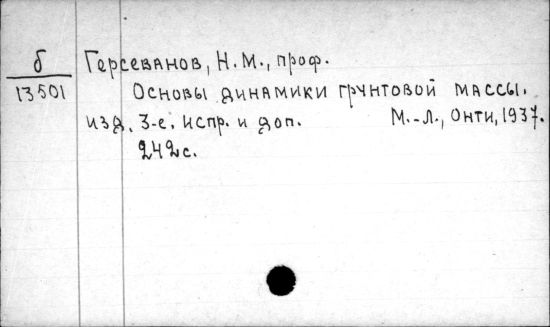 б
13501
Герсеванов, Н.М., проф.
Основы динамики грунтовой массы.
изд. 3-е. испр. и доп. М.-Л., Онти, 1937.
242с.